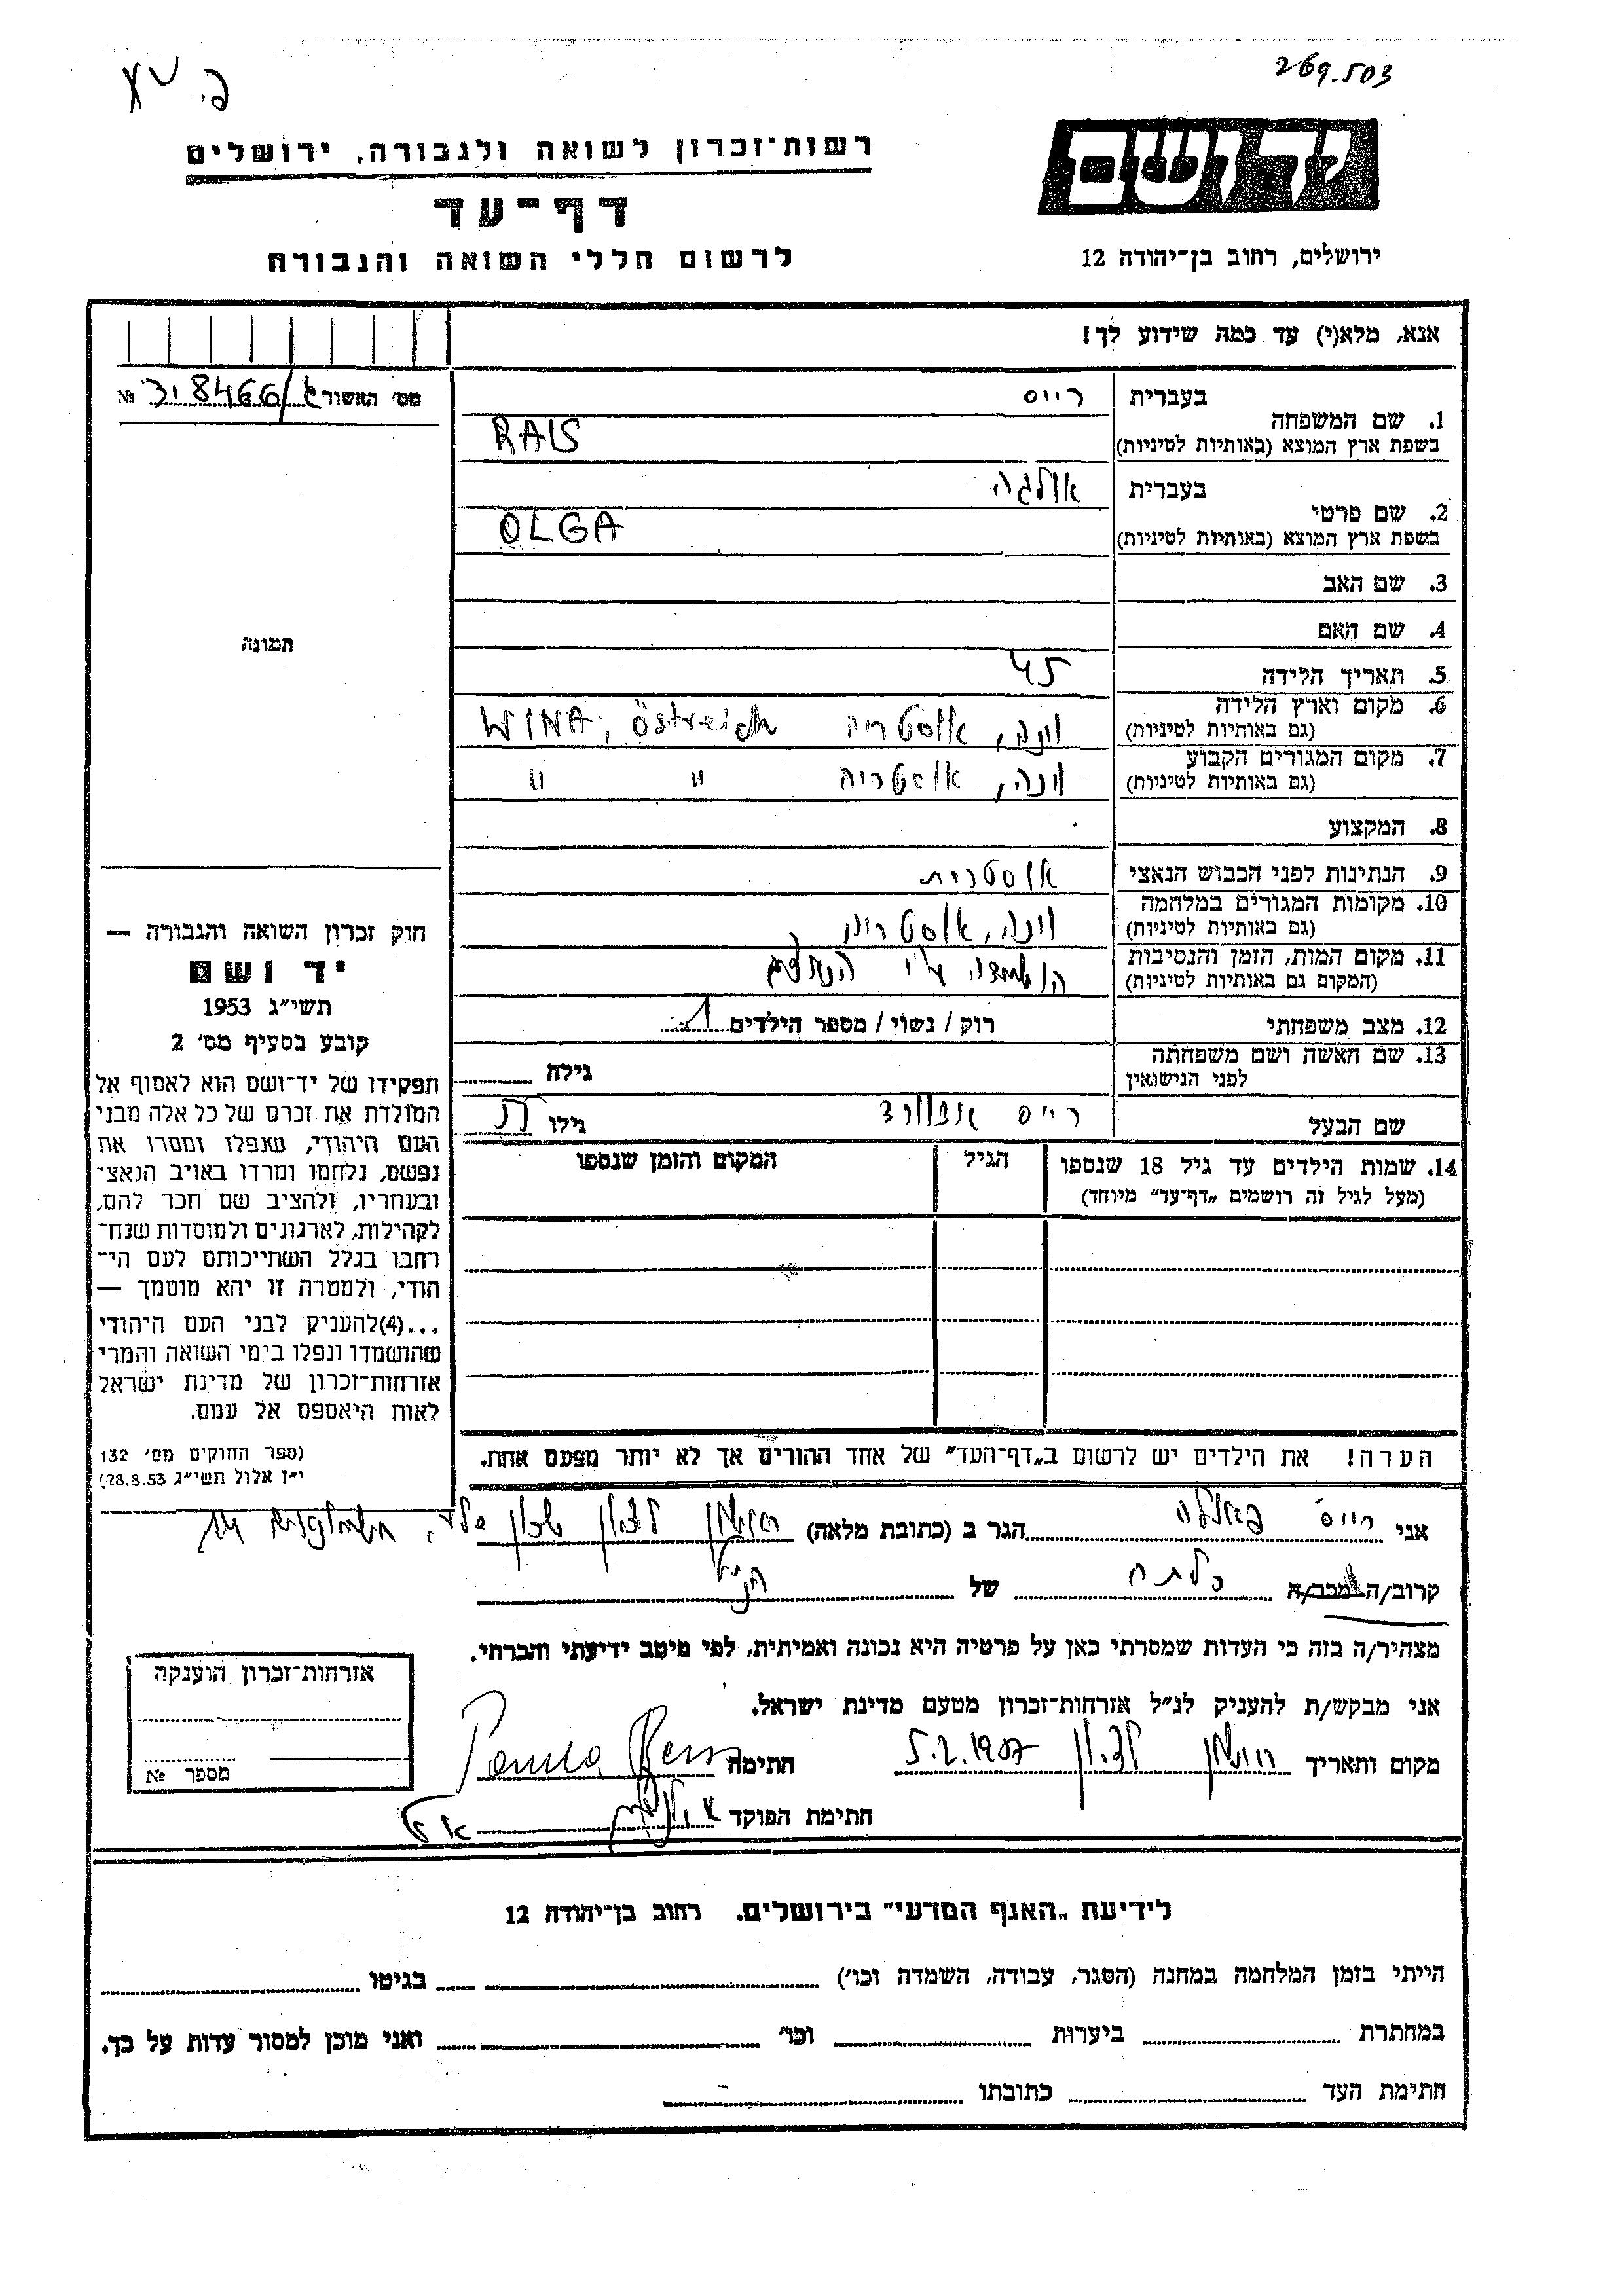 269.503
יד ושם
רשות־זכרון לשואה ולגבורה, ירושלים
דף־עד
לרשום חללי השואה והגבורה
ירושלים, רחוב בן־יהודה 12
אנא, מלא(י) עד כמה שידוע לך!
מס׳ האשור
№
בעברית רייס
1. שם המשפחה
בשפת ארץ המוצא (באותיות לטיניות) RAIS
בעברית אולגה
2. שם פרטי
בשפת ארץ המוצא (באותיות לטיניות) OLGA
3. שם האב
4. שם האם
5. תאריך הלידה 45
6. מקום וארץ הלידה
(גם באותיות לטיניות) וינה, אוסטריה WINA, östreich
7. מקום המגורים הקבוע
(גם באותיות לטיניות) וינה, אוסטריה " "
8. המקצוע
9. הנתינות לפני הכבוש הנאצי אוסטרית
10. מקומות המגורים במלחמה
(גם באותיות לטיניות) וינה, אוסטריה
11. מקום המות, הזמן והנסיבות
(המקום גם באותיות לטיניות) הושמדה ע"י הנאצים
12. מצב משפחתי רוק / נשוי / מספר הילדים 1
13. שם האשה ושם משפחתה
לפני הנישואין גילה
שם הבעל רייס גילו
14. שמות הילדים עד גיל 18 שנספו
(מעל לגיל זה רושמים „דף־עד” מיוחד)
הגיל
המקום והזמן שנספו
תמונה
חוק זכרון השואה והגבורה —
יד ושם
תשי״ג 1953
קובע בסעיף מס׳ 2
תפקידו של יד־ושם הוא לאסוף אל
המולדת את זכרם של כל אלה מבני
העם היהודי, שנפלו ומסרו את
נפשם, נלחמו ומרדו באויב הנאצי
ובעוזריו, ולהציב שם וזכר להם,
לקהילות, לארגונים ולמוסדות שנח־
רבו בגלל השתייכותם לעם הי־
הודי, ולמטרה זו יהא מוסמך —
...(4)להעניק לבני העם היהודי
שהושמדו ונפלו בימי השואה והמרי
אזרחות־זכרון של מדינת ישראל
לאות היאספם אל עמם.
(ספר החוקים מס׳ 132
י״ז אלול תשי״ג 28.8.53)
הערה! את הילדים יש לרשום ב„דף־העד” של אחד ההורים אך לא יותר מפעם אחת.
אני רייס פאולה הגר ב (כתובת מלאה) ראשון לציון שכון
קרוב/ה מכר/ה כלתה של הנ"ל
מצהיר/ה בזה כי העדות שמסרתי כאן על פרטיה היא נכונה ואמיתית, לפי מיטב ידיעתי והכרתי.
אני מבקש/ת להעניק לנ״ל אזרחות־זכרון מטעם מדינת ישראל.
מקום ותאריך ראשון לציון 5.2.1957 חתימה Paula Reiss
חתימת הפוקד
אזרחות־זכרון הוענקה
מספר №
לידיעת „האגף המדעי” בירושלים. רחוב בן־יהודה 12
הייתי בזמן המלחמה במחנה (הסגר, עבודה, השמדה וכו׳) בגיטו
במחתרת ביערות וכו׳ ואני מוכן למסור עדות על כך.
חתימת העד כתובתו